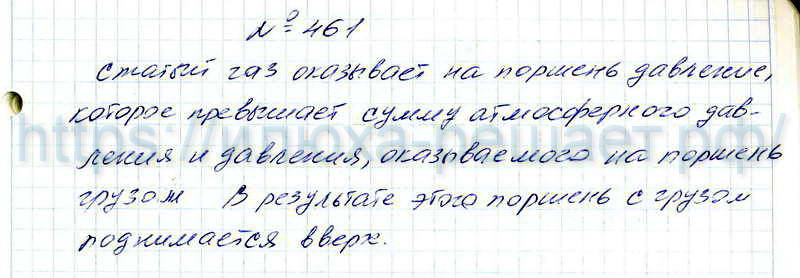 № 461
Сжатый газ оказывает на поршень давление,
которое превышает сумму атмосферного дав-
ления и давления, оказываемого на поршень
грузом В результате этого поршень с грузом
поднимается вверх.
https://илюха-решает.рф/